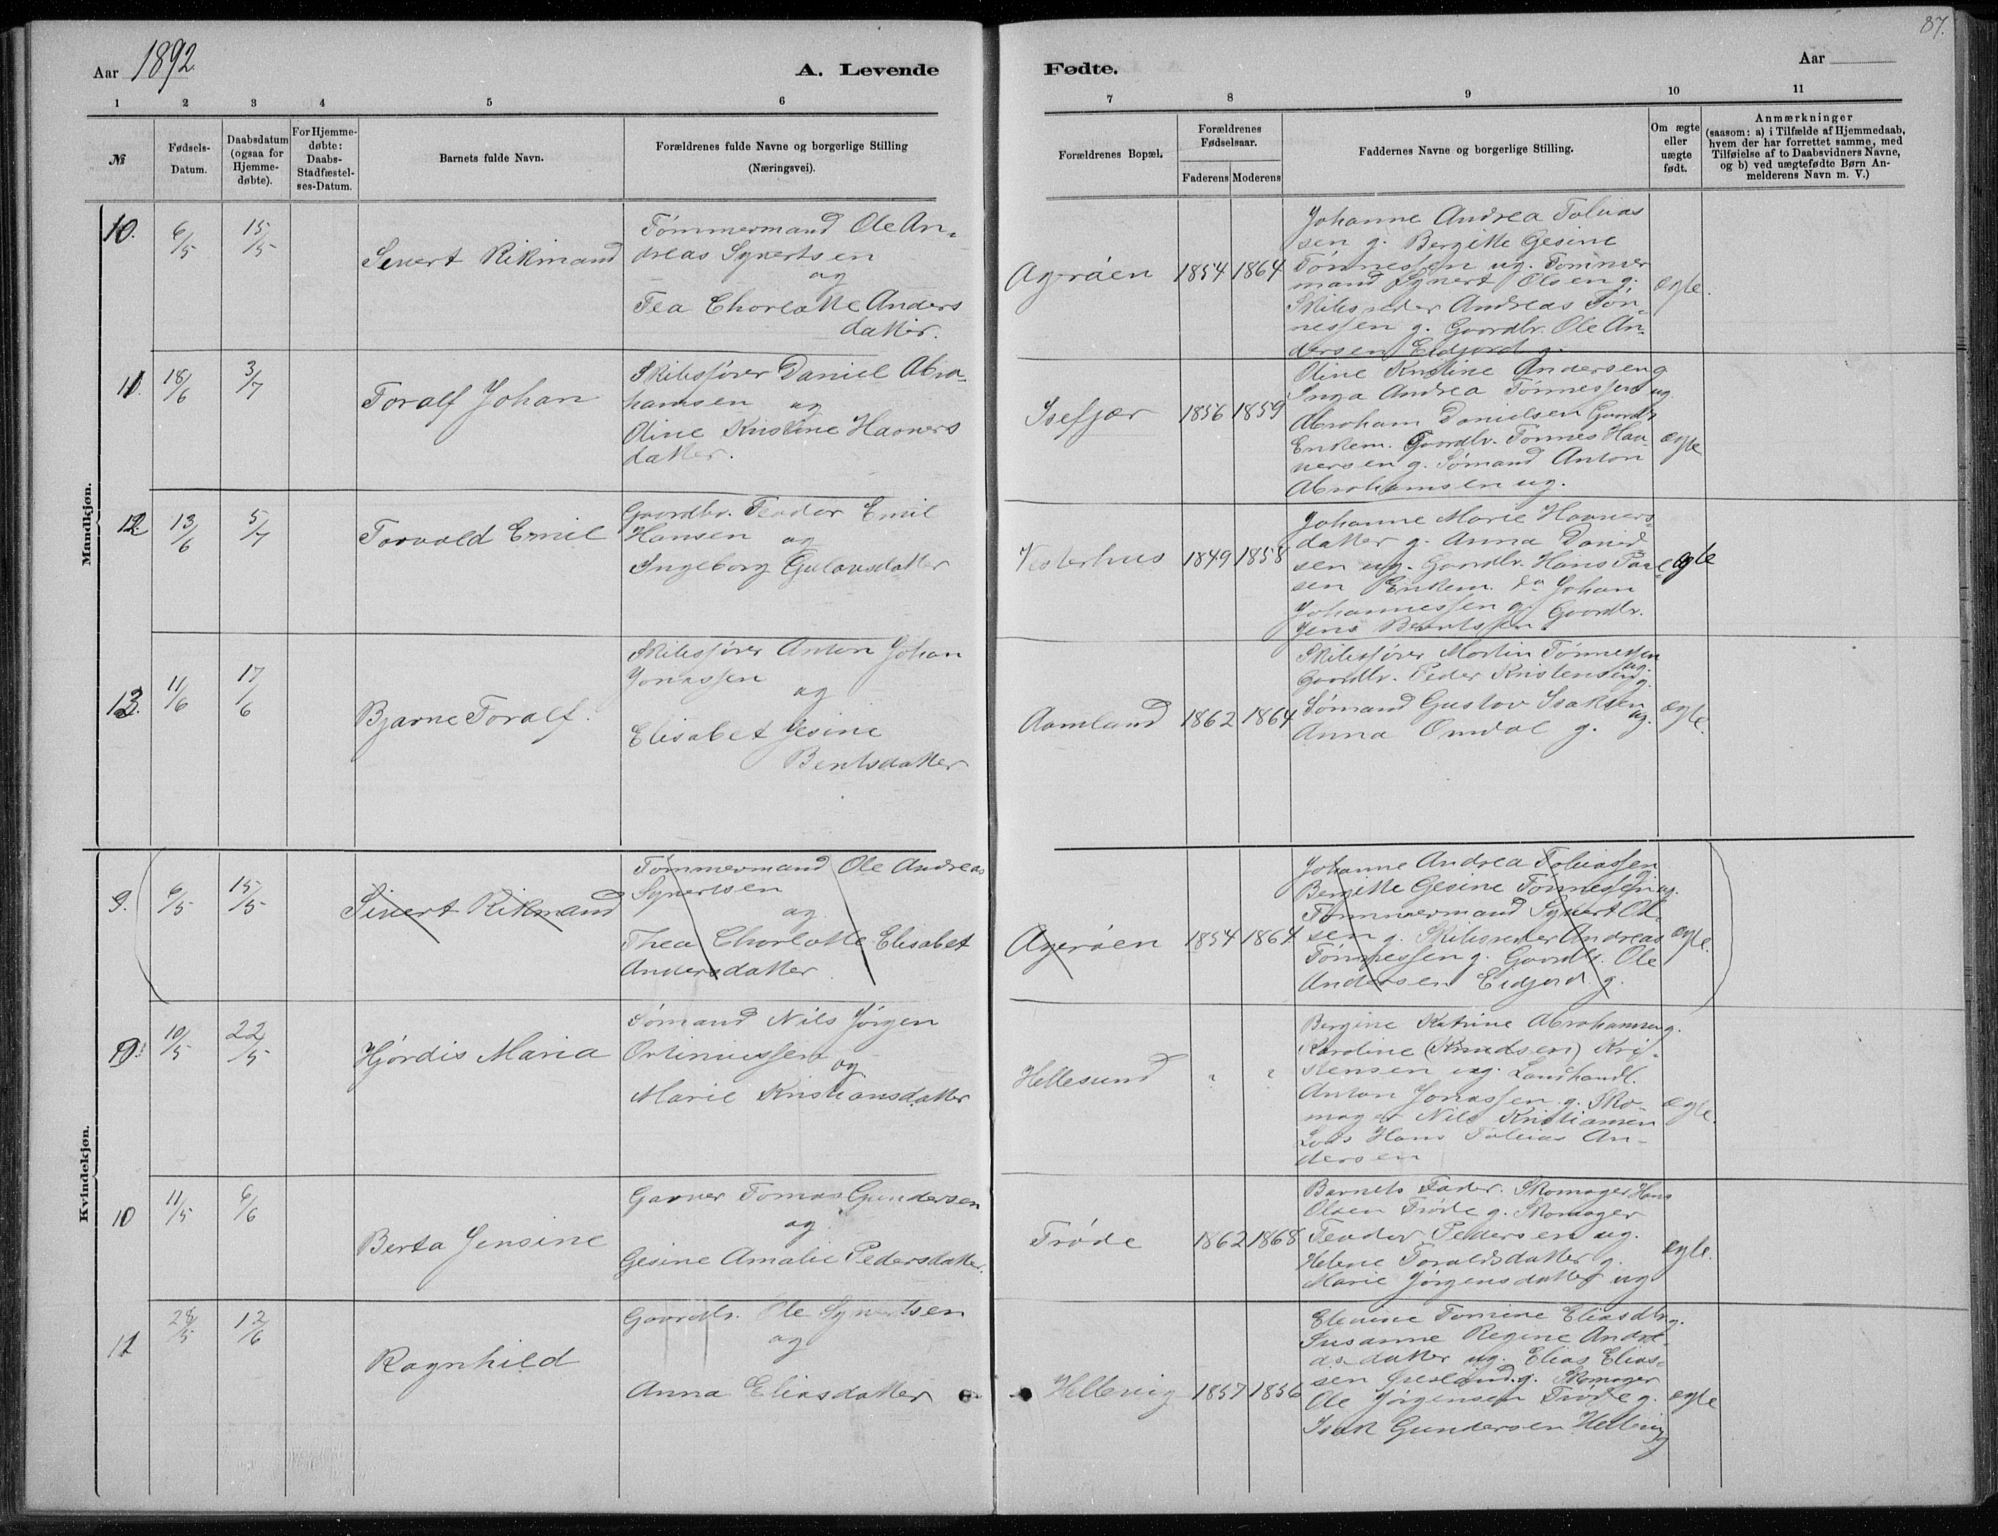 87.
Aar 1892.
A. Levende
Fødte.
Aar
1
2
3
4
5
6
7
8
9
10
11
№
Fødsels-
Datum.
Daabsdatum
(ogsaa for
Hjemme-
døbte).
For Hjemme-
døbte:
Daabs-
Stadfæstel-
ses-Datum.
Barnets fulde Navn.
Forældrenes fulde Navne og borgerlige Stilling
(Næringsvei).
Forældrenes Bopæl.
Forældrenes
Fødselsaar.
Faderens
Moderens
Faddernes Navne og borgerlige Stilling.
Om ægte
eller
uægte
født.
Anmærkninger
(saasom: a) i Tilfælde af Hjemmedaab,
hvem der har forrettet samme, med
Tilføielse af to Daabsvidners Navne,
og b) ved uægtefødte Børn An-
melderens Navn m. V.)
Mandkjøn.
10.
6/5
15/5
Sivert Rikmand
Tømmermand Ole An-
dreas Syvertsen
og
Tea Charlotte Anders
datter.
Agerøen
1854
1864
Johanne Andrea Tobias
sen g. Bergitte Gesine
Tønnessen ug. Tømmer
mand Syvert Olsen g.
Skibsreder Andreas Tøn-
nessen g. Gaardbr. Ole An-
dersen Eidjord g.
ægte.
11.
18/6
3/7
Toralf Johan
Skibsfører Daniel Abra-
hamsen og
Oline Kristine Havners
datter.
Isefjær
1856
1859
Oline Kristine Andersen g
Inga Andrea Tønnessen ug
Abraham Danielsen Gaardb
Enkem. Gaardbr. Tønnes Hav-
nersen g. Sømand Anton
Abrahamsen ug.
ægte
12.
13/6
5/7
Torvald Emil
Gaardbr. Teodor Emil
Hansen og
Ingeborg Gulovsdatter
Vesterhus
1849
1858
Johanne Marie Havners-
datter g. Anna Daned
sen ug. Gaardbr. Hans Paal
sen Enkem. do Johan
Johannessen g. Gaardbr.
Jens Berntssen.
ægte
13.
11/6
17/6
Bjarne Toralf.
Skibsfører Anton Johan
Jonassen
og
Elisabet Jesine
Bentsdatter
Aamland
1862
1864
Skibsfører Martin Tønnessen
ug.
Gaardbr. Peder Kristensen g.
Sømand Gustav Isaksen
ug.
Anna Omdal g.
ægte.
Kvindekjøn.
9.
6/5
15/5
Sivert Rikmand
Tømmermand Ole Andreas
Syvertsen
og
Thea Charlotte Elisabet
Andersdatter.
Agerøen
1854
1864
Johanne Andrea Tobiassen g
Bergitte Gesine Tønnessen ug.
Tømmermand Syvert Ol-
sen g. Skibsreder Andreas
Tønnessen g. Gaardb. Ole
Andersen Eidjord g.
ægte.
9.
10/5
22/5
Hjørdis Maria
Sømand Nils Jørgen
Ortiniussen
og
Marie Kristiansdatter
Hellesund
?
?
Bergine Katrine Abrahamsen g.
Karoline (Knudsen) Kri-
stensen ug. Landhandl.
Anton Jonassen g. Sko-
mager Nils Kristiansen
Lods Hans Tobias An-
dersen
ægte.
10
11/5
6/6
Berta Jensine
Garver Tomas Gundersen
og
Gesine Amalie Pedersdatter.
Trøde
1862
1868
Barnets Fader. Skomager Hans
Olsen Trøde g. Skomager
Teodor Pedersen ug.
Helene Toraldsdatter g.
Marie Jørgensdatter ug
ægte.
11
28/5
12/6
Ragnhild
Gaardbr. Ole Syvertsen
og
Anna Eliasdatter
Hellevig
1857
1856
Elevine Tomine Eliasdtr g.
Susanne Regine Andre
asdatter ug. Elias Elias-
sen g. Skomager
Ole Jørgensen Trøde g.
Isak Gundersen Hellevig
g
ægte